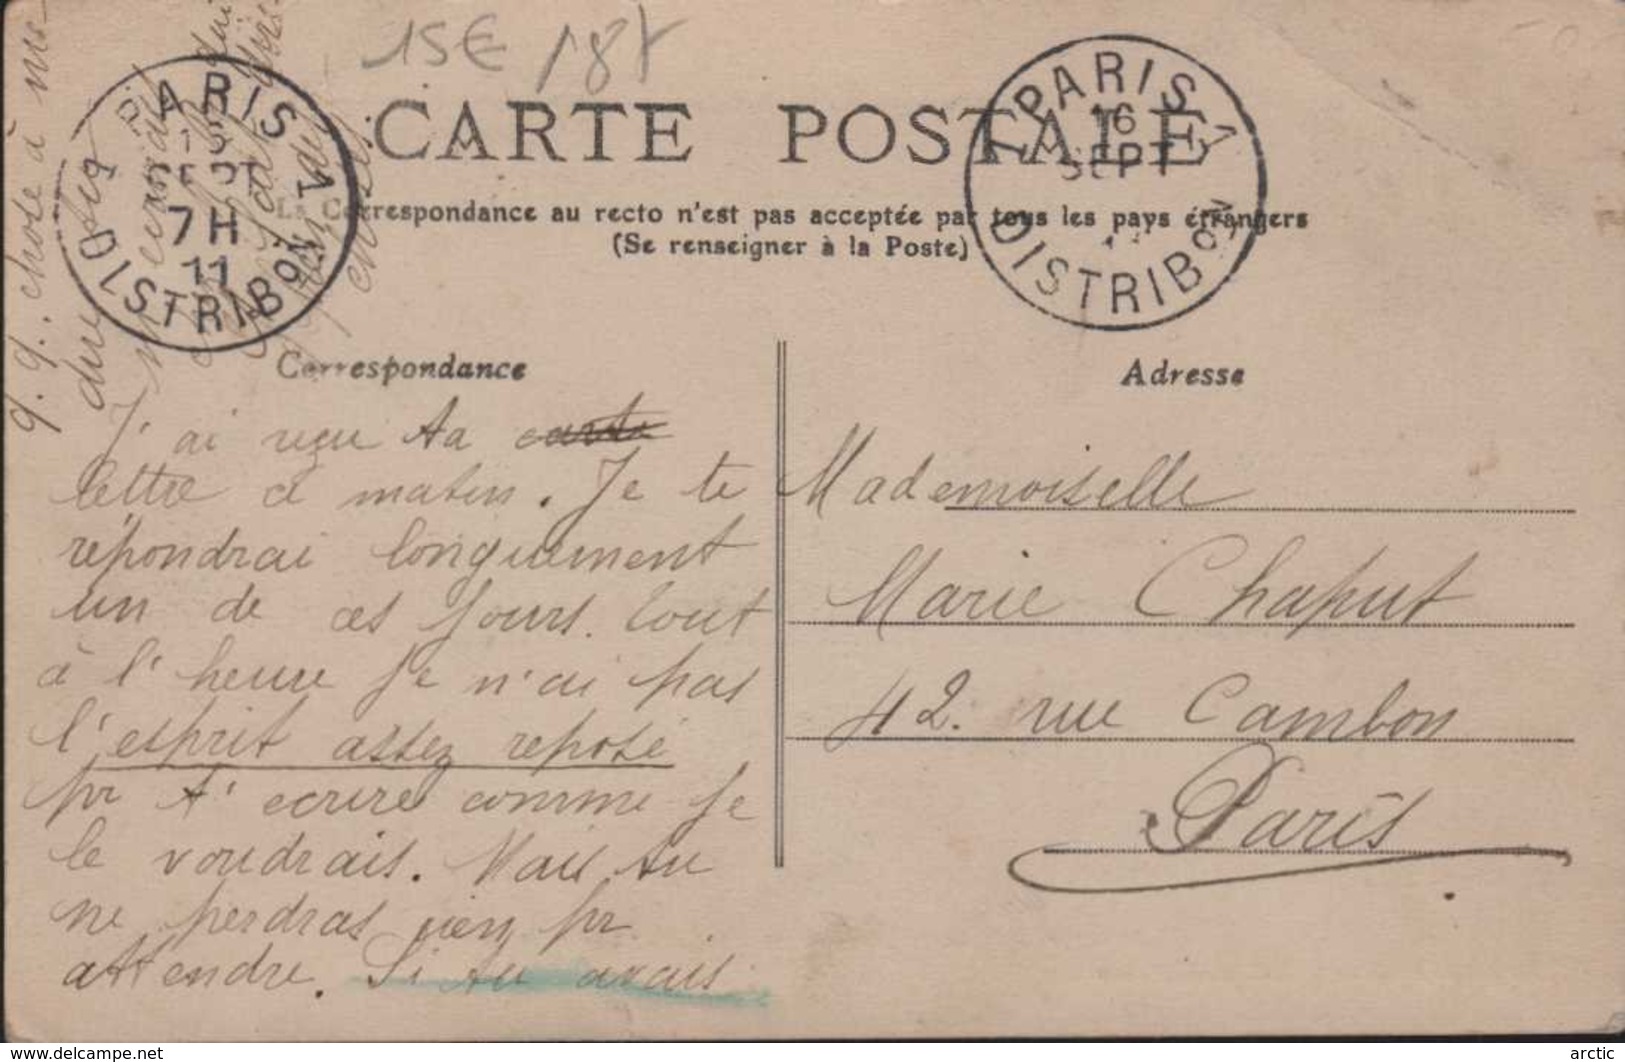 15€ 187
CARTE POSTALE
La Correspondance au recto n'est pas acceptée par tous les pays étrangers
(Se renseigner à la Poste)
PARIS 1
DISTRIBON
15
SEPT
7H
11
PARIS 1
DISTRIBON
16
SEPT
Correspondance
J'ai reçu ta carte
lettre ce matin. Je te
répondrai longuement
un de ces jours. Tout
à l'heure je n'ai pas
l'esprit assez reposé
pr t'écrire comme je
le voudrais. Mais tu
ne perdras rien pr
attendre. Si tu avais
q.q. chose à me
dire
Adresse
Mademoiselle
Marie Chaput
42. rue Cambon
Paris
www.delcampe.net
arctic